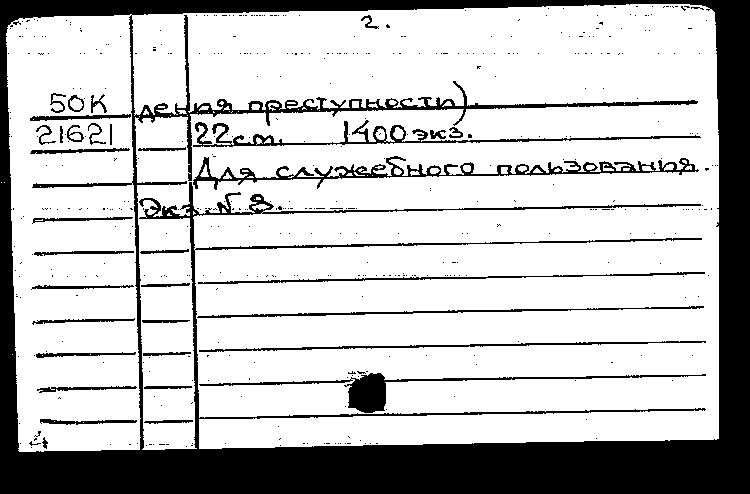 2.
50К дения преступности).
21621 22 cm. 1400 экз.
Для служебного пользования.
Экз. № 8.
4